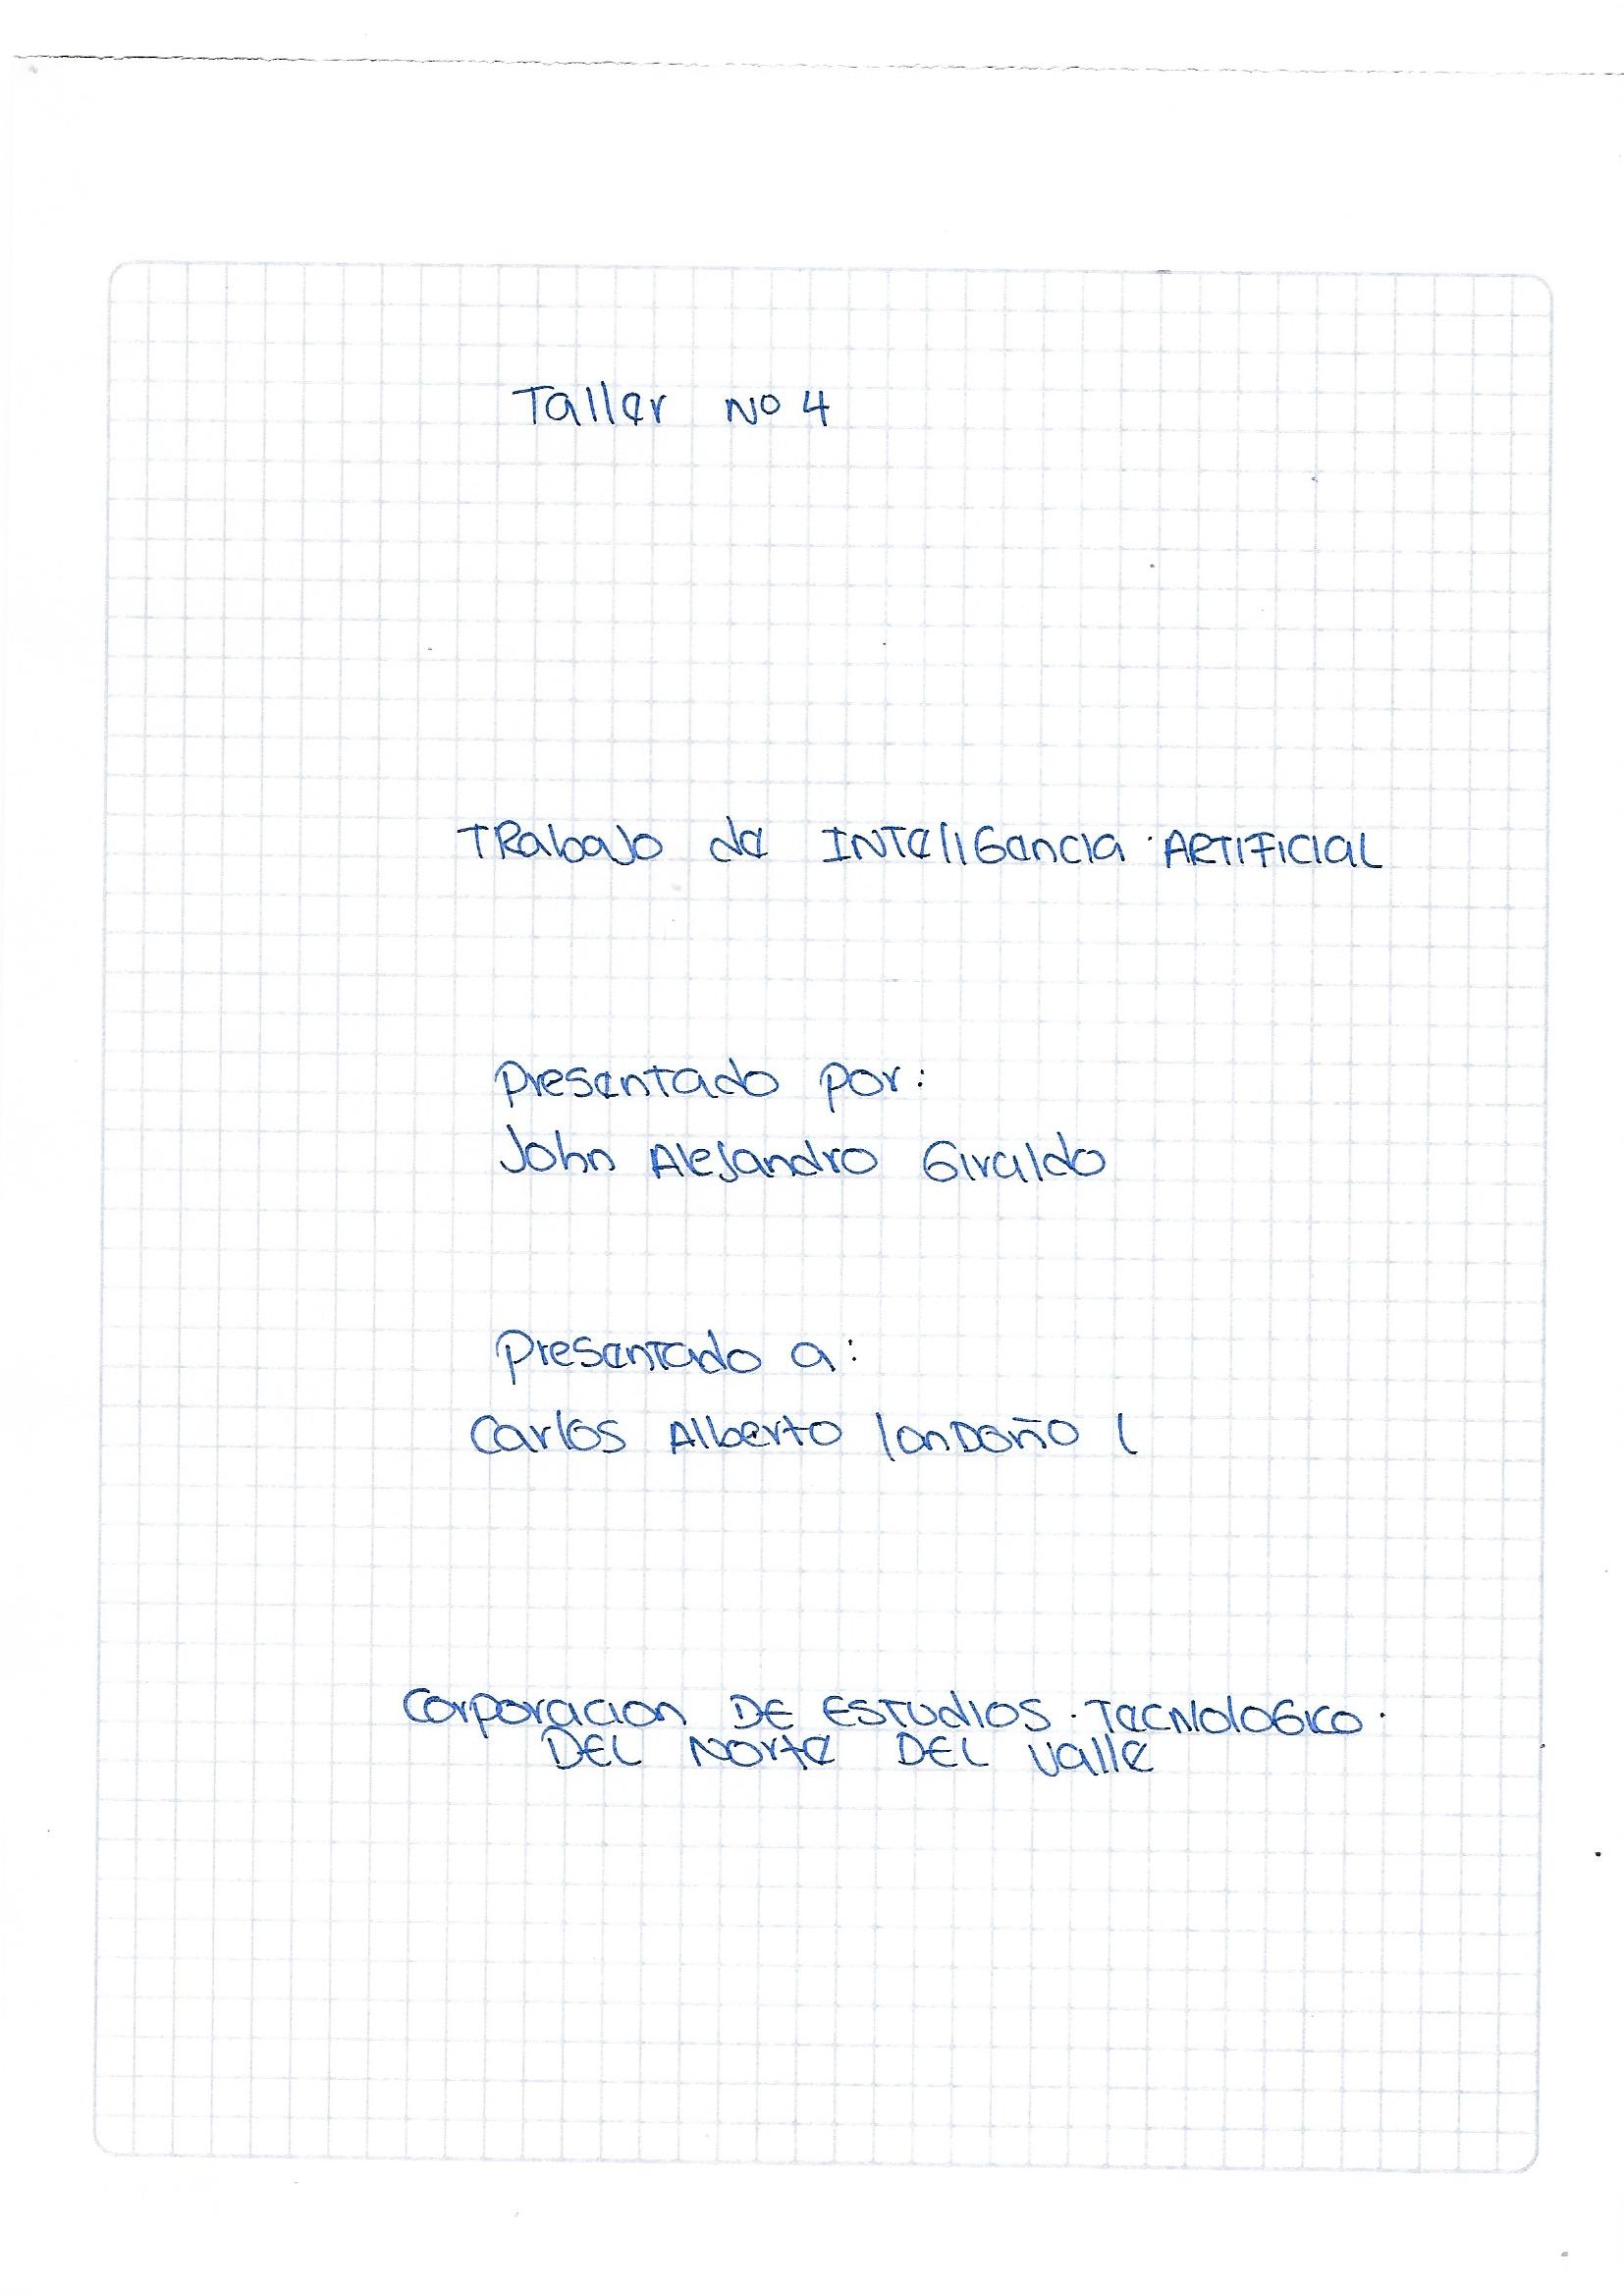 Taller No 4
TRabaJo de INTeliGencia ARTIFICIAL
Presentado por:
John AleJandro Giraldo
Presentado a:
Carlos Alberto lonDoño l
Corporacion DE ESTUdIOS. TecNoloGico.
DEL Norte DEL Valle